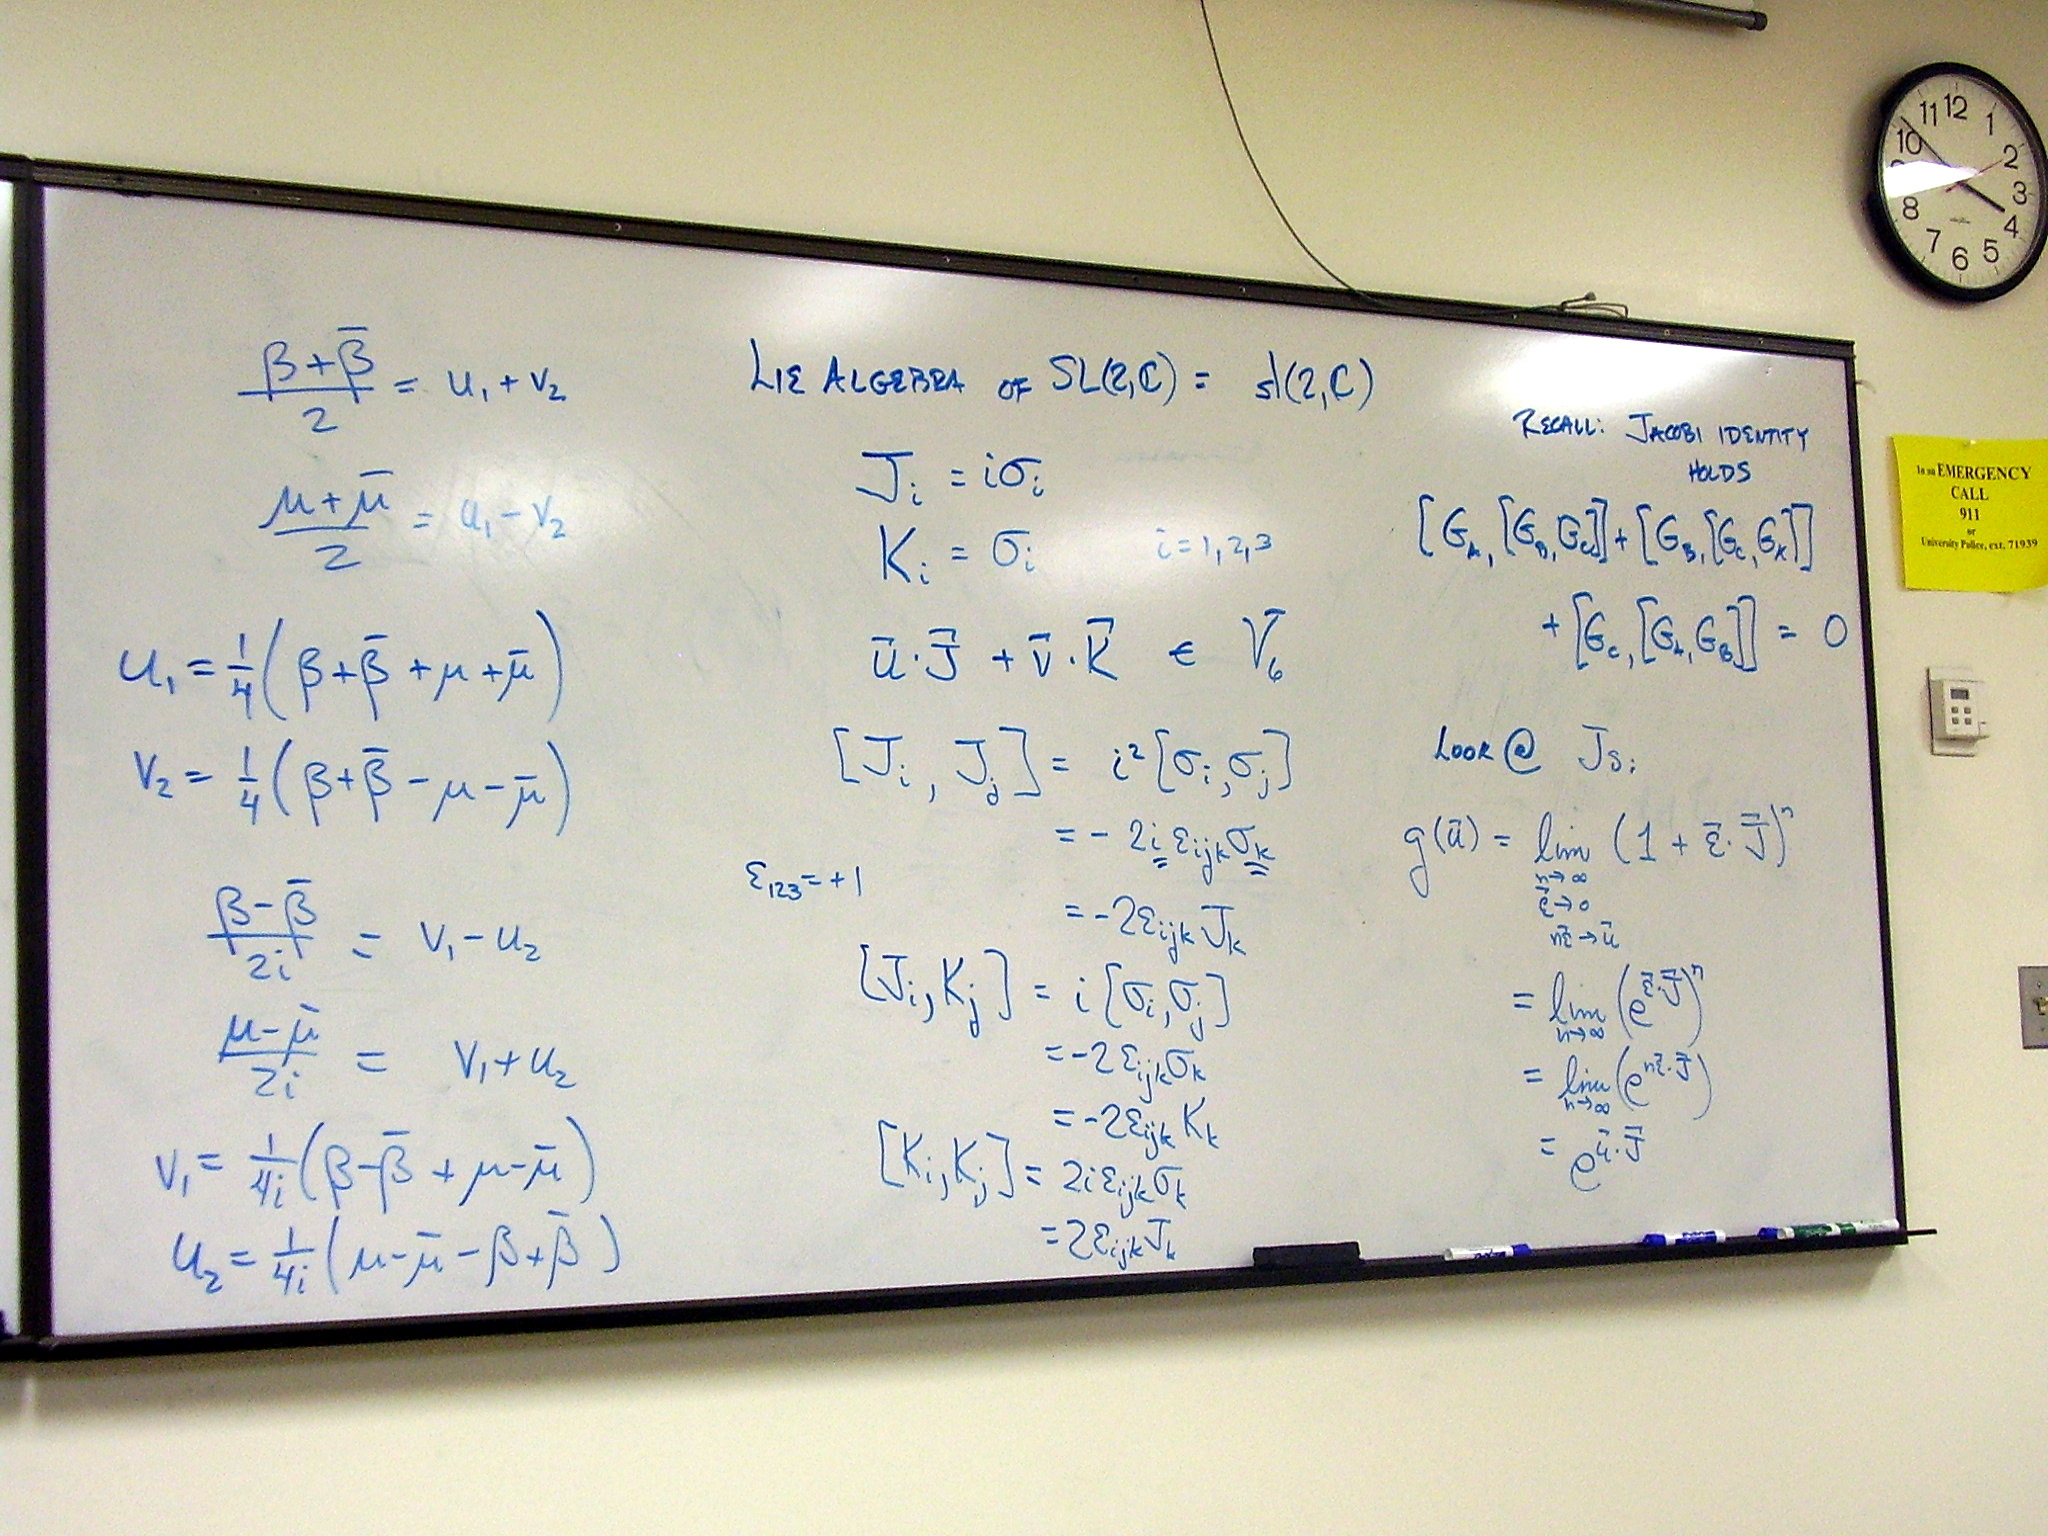 β + β̄ / 2 = u₁ + v₂
μ + μ̄ / 2 = u₁ − v₂
u₁ = 1/4 (β + β̄ + μ + μ̄)
v₂ = 1/4 (β + β̄ − μ − μ̄)
β − β̄ / 2i = v₁ − u₂
μ − μ̄ / 2i = v₁ + u₂
v₁ = 1/4i (β − β̄ + μ − μ̄)
u₂ = 1/4i (μ − μ̄ − β + β̄)
LIE ALGEBRA OF SL(2,ℂ) = sl(2,ℂ)
Jᵢ = iσᵢ
Kᵢ = σᵢ i = 1, 2, 3
u⃗·J⃗ + v⃗·K⃗ ∈ V₆
[Jᵢ, Jⱼ] = i²[σᵢ, σⱼ]
= − 2i εᵢⱼₖ σₖ
ε₁₂₃ = +1
= −2εᵢⱼₖ Jₖ
[Jᵢ, Kⱼ] = i[σᵢ, σⱼ]
= −2 εᵢⱼₖ σₖ
= −2εᵢⱼₖ Kₖ
[Kᵢ, Kⱼ] = 2i εᵢⱼₖ σₖ
= 2εᵢⱼₖ Jₖ
RECALL: JACOBI IDENTITY
HOLDS
[G_A, [G_B, G_C]] + [G_B, [G_C, G_A]]
+ [G_C, [G_A, G_B]] = 0
LOOK @ Js:
g(u⃗) = lim (1 + ε⃗·J⃗)ⁿ
n→∞
ε⃗→0
nε⃗→u⃗
= lim (e^{ε⃗·J⃗})ⁿ
n→∞
= lim (e^{nε⃗·J⃗})
n→∞
= e^{u⃗·J⃗}
11 12 1
10 2
3
8 4
7 6 5
In an EMERGENCY
CALL
911
or
University Police, ext. 71939